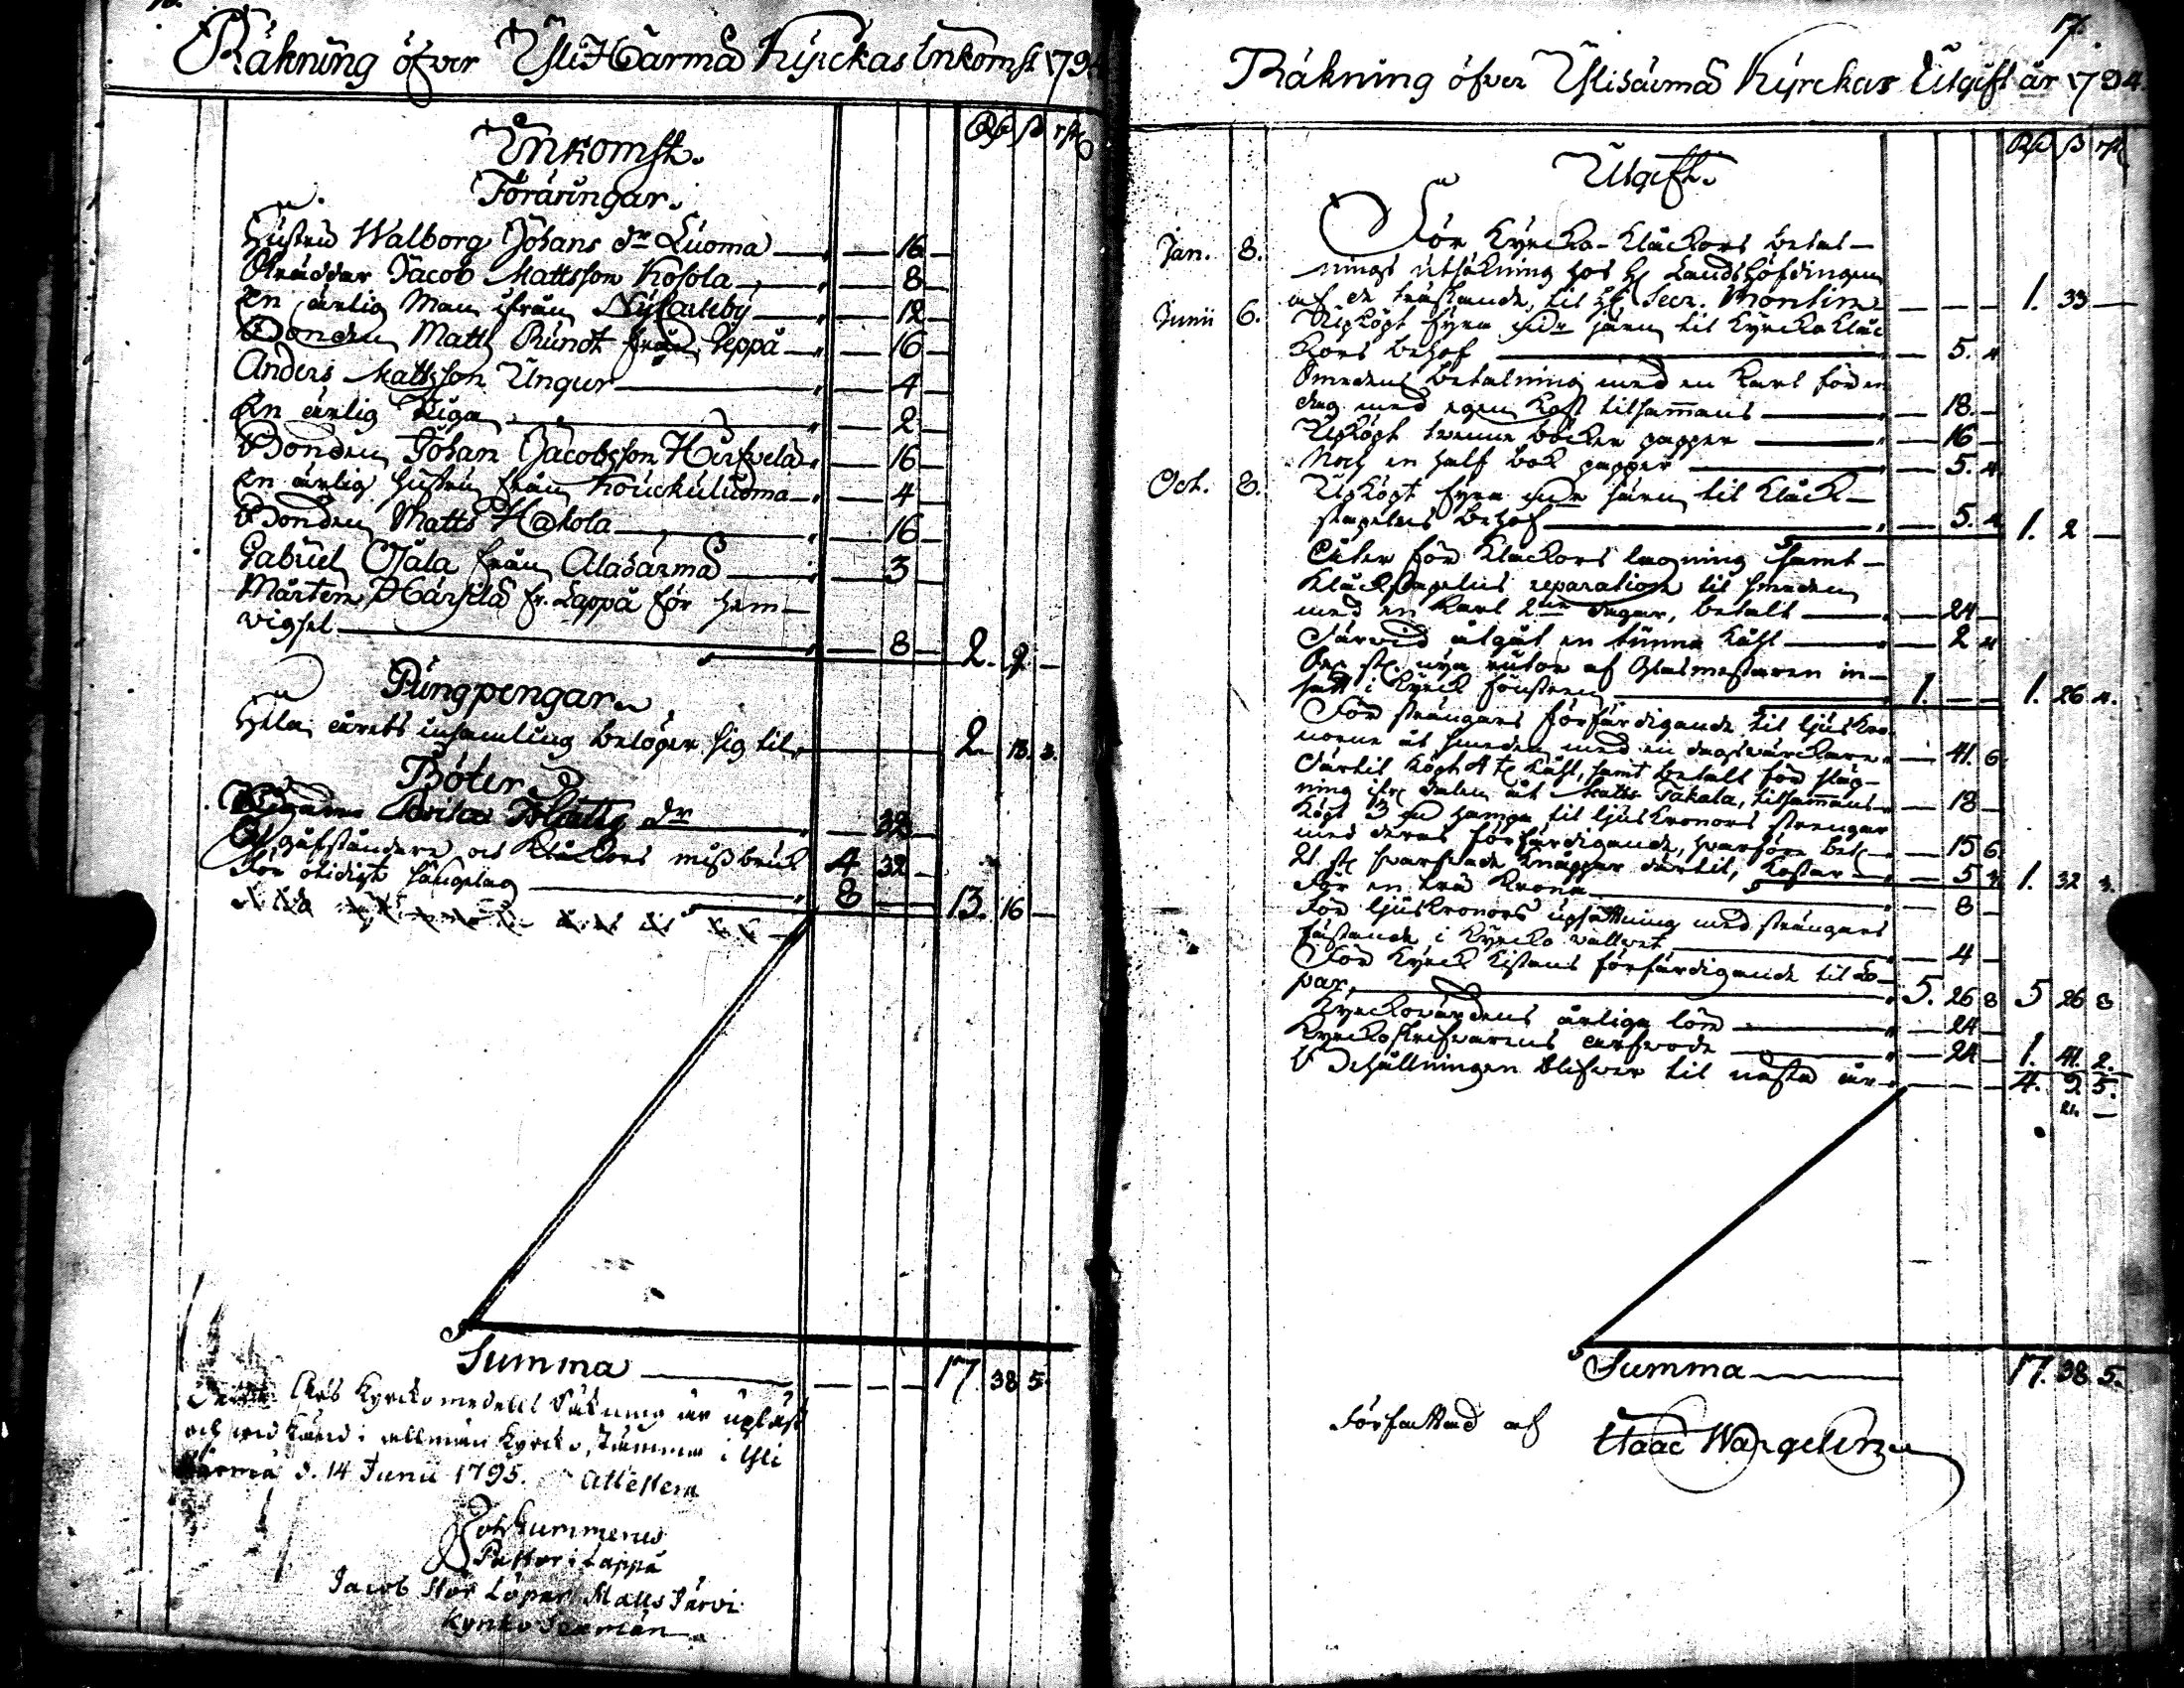 Räkning öfver Ylihärmä Kyrckas Inkomst 179
Rd ß rst
Inkomst.
Föräringar.
Hustru Walborg Johans dr Luoma — 16 —
Skräddar Jacob Mattsson Kosola — 8 —
En ärlig Man ifrån NyCarleby — 12 —
Bonden Matts Rundt från Veppä — 16 —
Anders Mattsson Ungur — 4 —
En ärlig Piga — 2 —
Bonden Johan Jacobsson Hirfvelä — 16 —
En ärlig hustru från Kouckuluoma — 4 —
Bonden Matts Hakola — 16 —
Gabriel Ojala från Alahärmä — 3 —
Mårten Härsilä fr. Lappå för hem-
vigsel — 8 — 2. 9 —
Pungpengar.
Hela årets insamling belöper sig til 2 13. 5.
Böter
Pigan Brita Matts dr — 32 —
Ogäfständare och Klåckors missbruk 4 32 —
För otidigt sänglag 8 — — 13. 16 —
Summa — 17 38 5.
Detta Års Kyrckomedels Räkning är upläst
och vid känd i allmän Kyrcko stämma i Yli
Härmä d. 14 Junii 1795. Attestera
Joh Gummerus
Pastor i Lappå
Jacob Stor Löpari Matts Järvi
Kyrko Sexmän
17.
Räkning öfver Ylihärmä Kyrckas Utgift år 1794.
Rd ß rst
Utgift.
Jan. 8. För Kyrcko-Klåckors betal-
nings utsökning hos H. Landshöfdingen
af de tresskande, til H. Secr. Montin — 1. 33 —
Junii 6. Upköpt fyra jern til Kyrcko Klåc
kors behof — 5. 4
Smedens betalning med en Karl för en
dag med egen Kost tilsammans — 18 —
Upköpt tvenne böcker papper — 16 —
Noch en half bok papper — 5. 4
Oct. 8. Upköpt fyra järn til Klåck-
stapelns behof — 5. 4 1. 2 —
Åter för Klåckors lagning samt
Klåckstapelns reparation til smeden
med en Karl 2ne dagar, betalt — 24 —
Därvid åtgåt en tunna Kåhl — 2 4
Sex st. nya rutor af Glasmestaren in-
satt i Kyrck fönstren 1. — — 1. 26 4.
För strängars förfärdigande til ljuskro-
norne åt smeden med en dagsvärckare — 41. 6
Därtil köpt 4 t. Kåhl, samt betalt för släp-
ning åt Matts Takala, tilsammans — 18 —
Köpt 3 hampa til ljuskronors strengar
med deras förfärdigande, hvarföre bet. — 15 6
21 st. svarfvade Knappar därtil, Kostar — 5 3 1. 32 3.
För en trä Krona — 8 —
För ljuskronors upsättning med strängars
fästande i Kyrcko valfvet — 4 —
För Kyrck Kistans förfärdigande til Ko-
par 5. 26 8 5 26 8
Kyrckovärdens årliga lön — 24 —
Kyrckoskrifvarens arfvode — 24 — 1. 41. 2.
Behållningen blifver til nästa år — 4. 9 5.
21. —
Summa — 17. 38. 5.
Författad af Isaac Wargelin